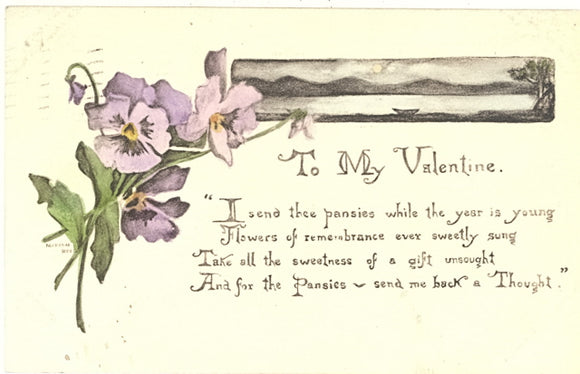 To My Valentine.
"I send thee pansies while the year is young
Flowers of remembrance ever sweetly sung
Take all the sweetness of a gift unsought
And for the Pansies ~ send me back a Thought."